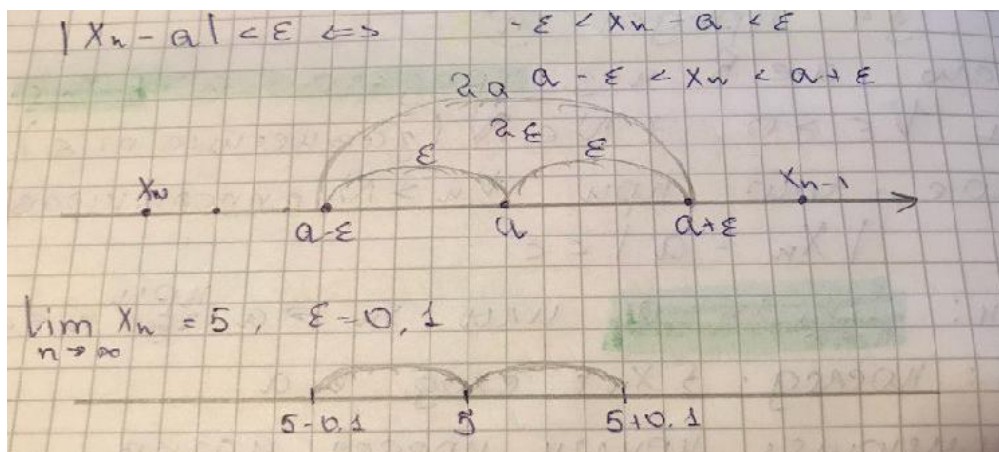 |Xn - a| < ε <=> -ε < Xn - a < ε
2a a - ε < Xn < a + ε
2ε
ε ε
Xn Xn-1
a-ε a a+ε
lim Xn = 5, ε = 0,1
n→∞
5-0,1 5 5+0,1